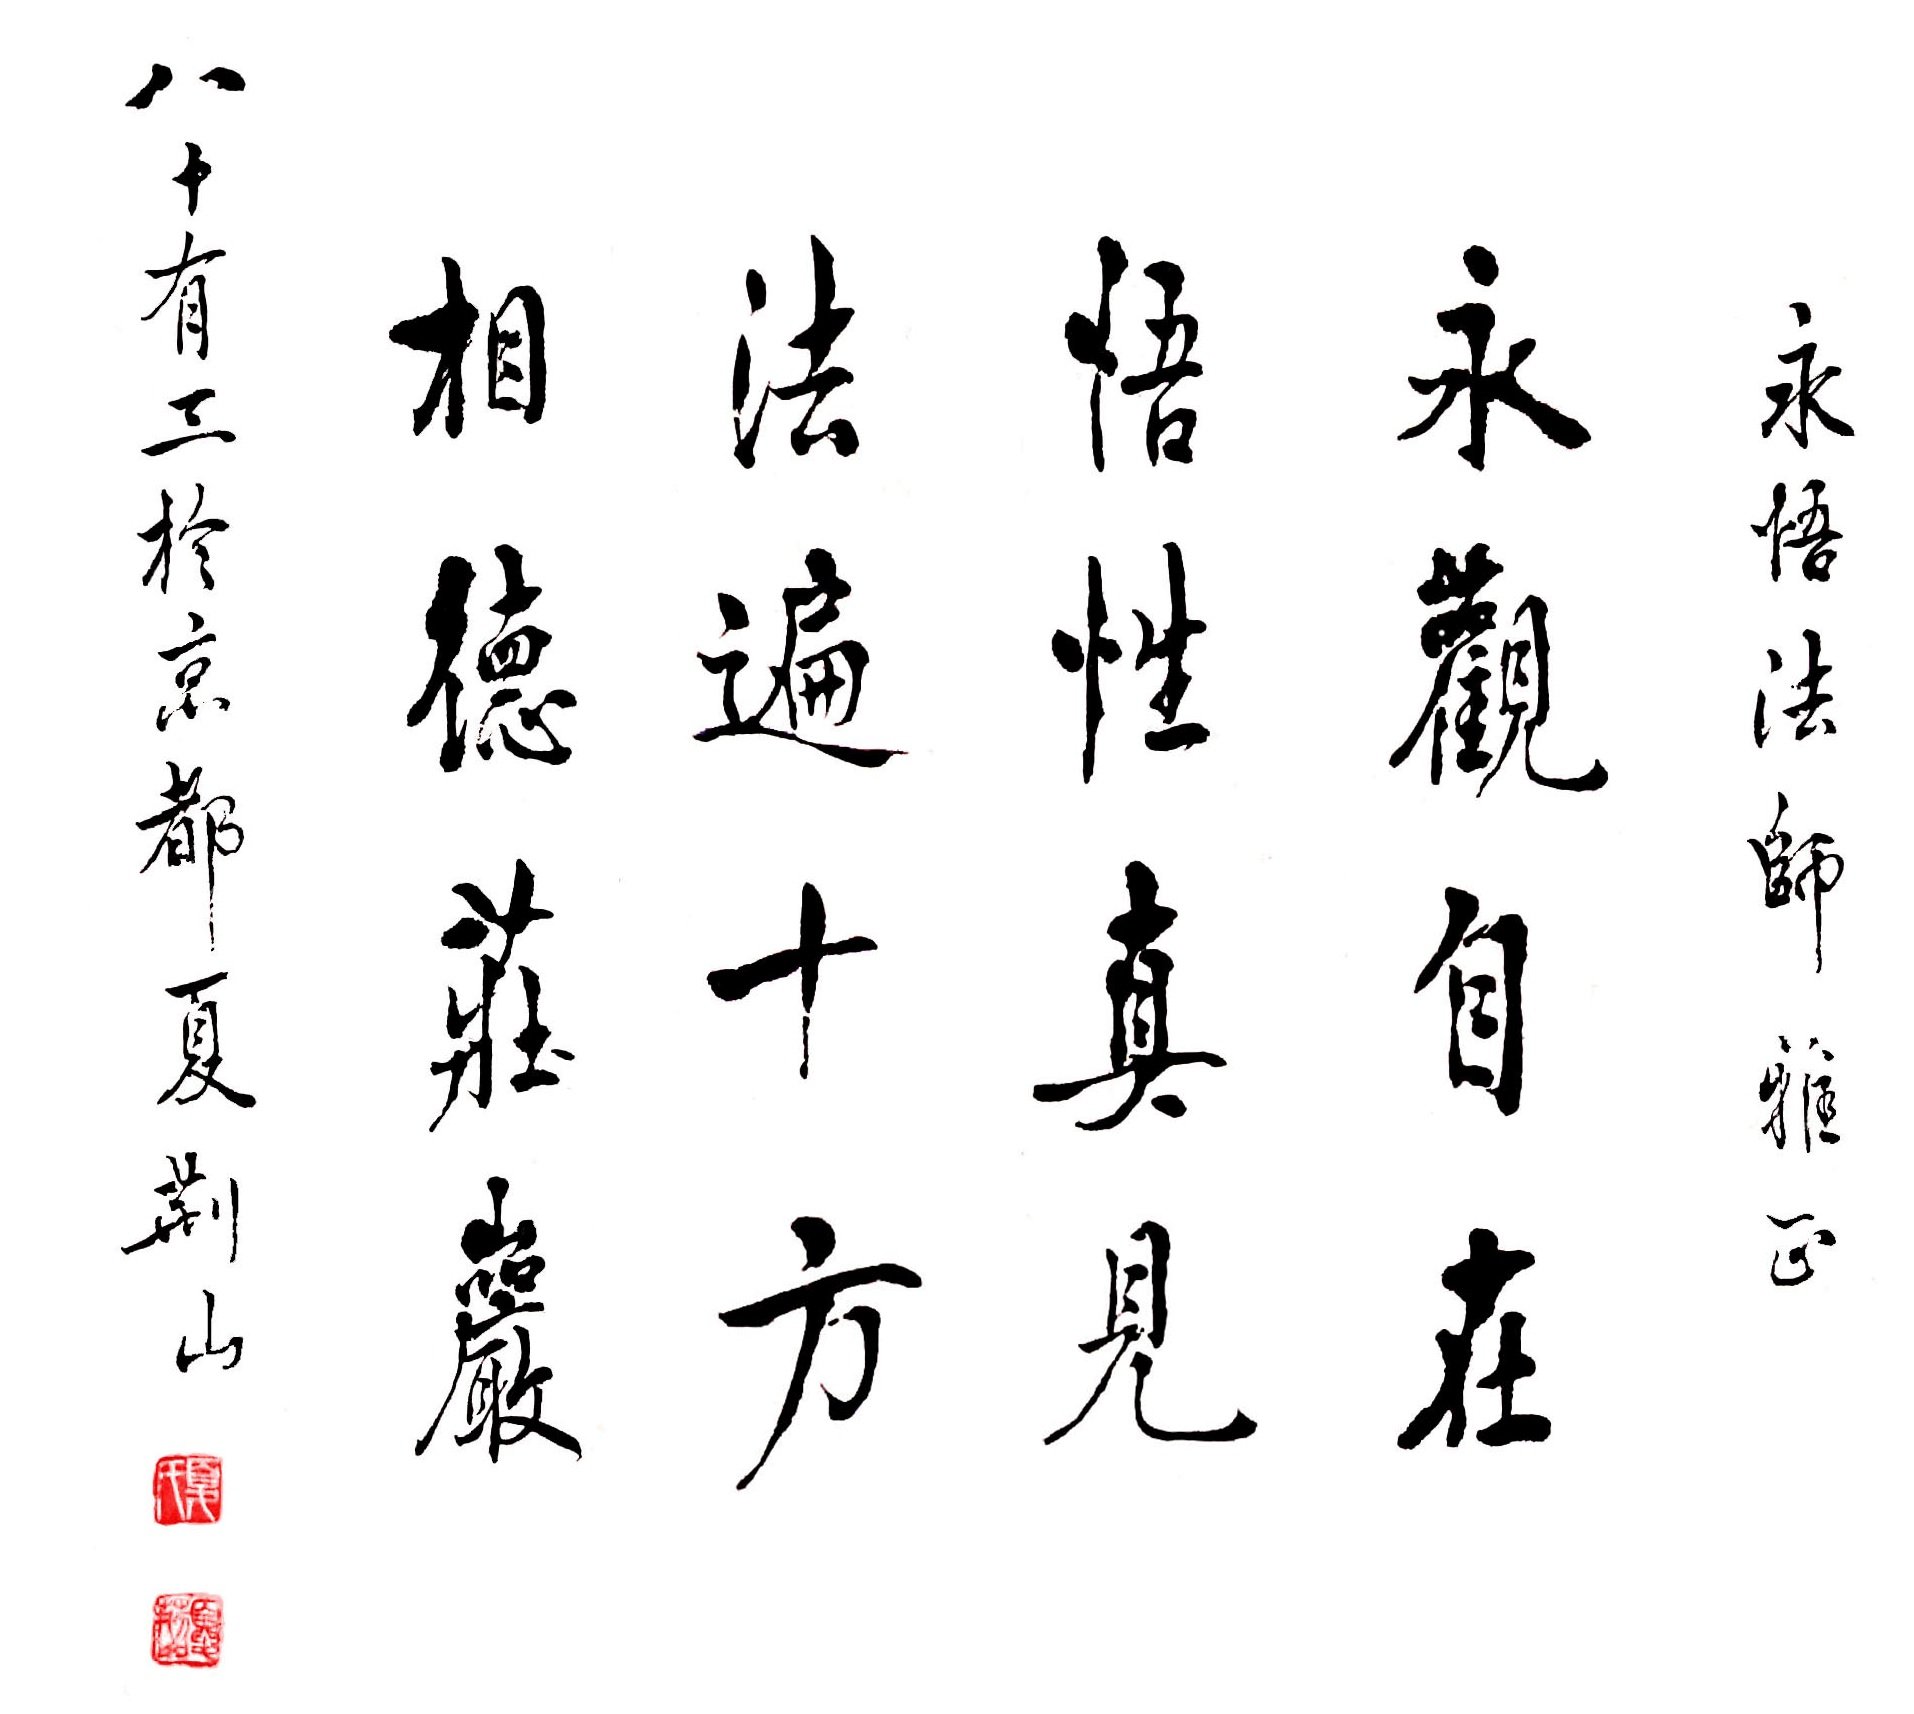 永悟法師 雅正
永觀自在
悟性真見
法遍十方
相德莊嚴
八十有三於京都夏荆山